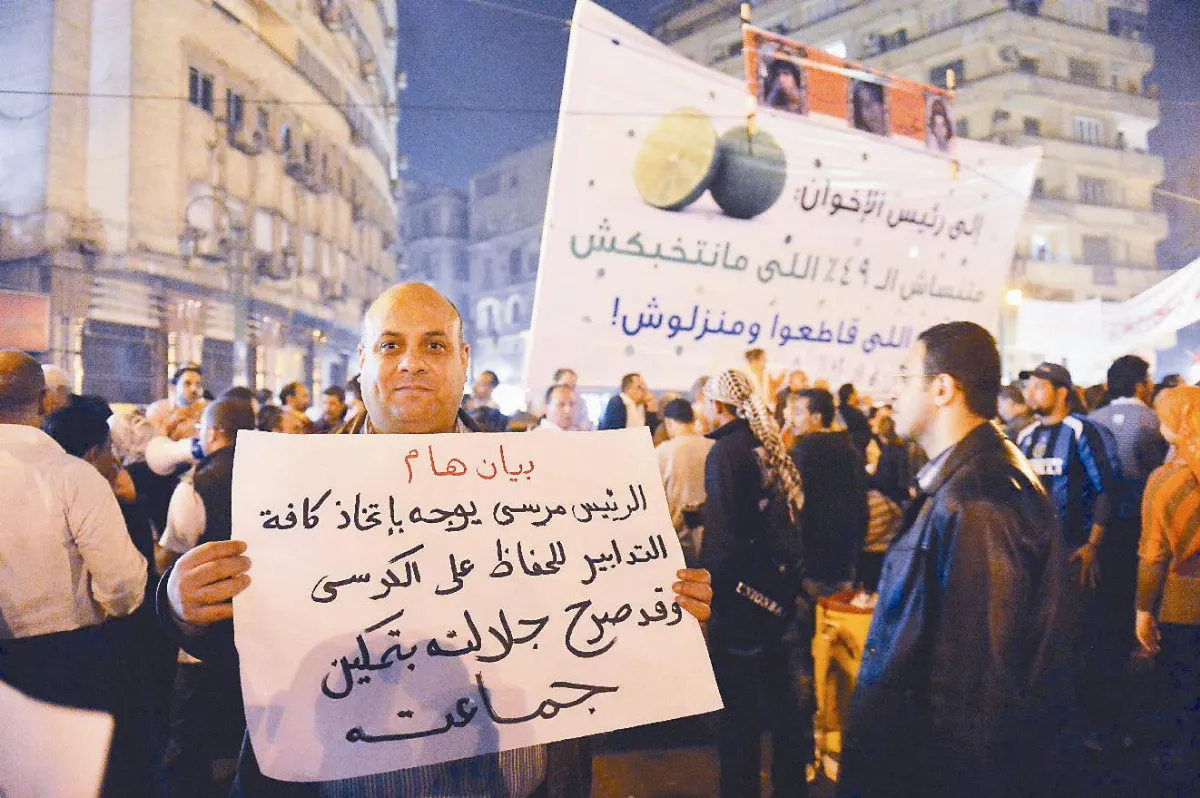 بيان هام
الرئيس مرسى يوجه بإتخاذ كافة
التدابير للحفاظ على الكرسى
وقد صرح جلالته بتمكين
جماعته
إلى رئيس الإخوان:
متنساش الـ ٤٩٪ اللى مانتخبكش
اللى قاطعوا ومنزلوش!